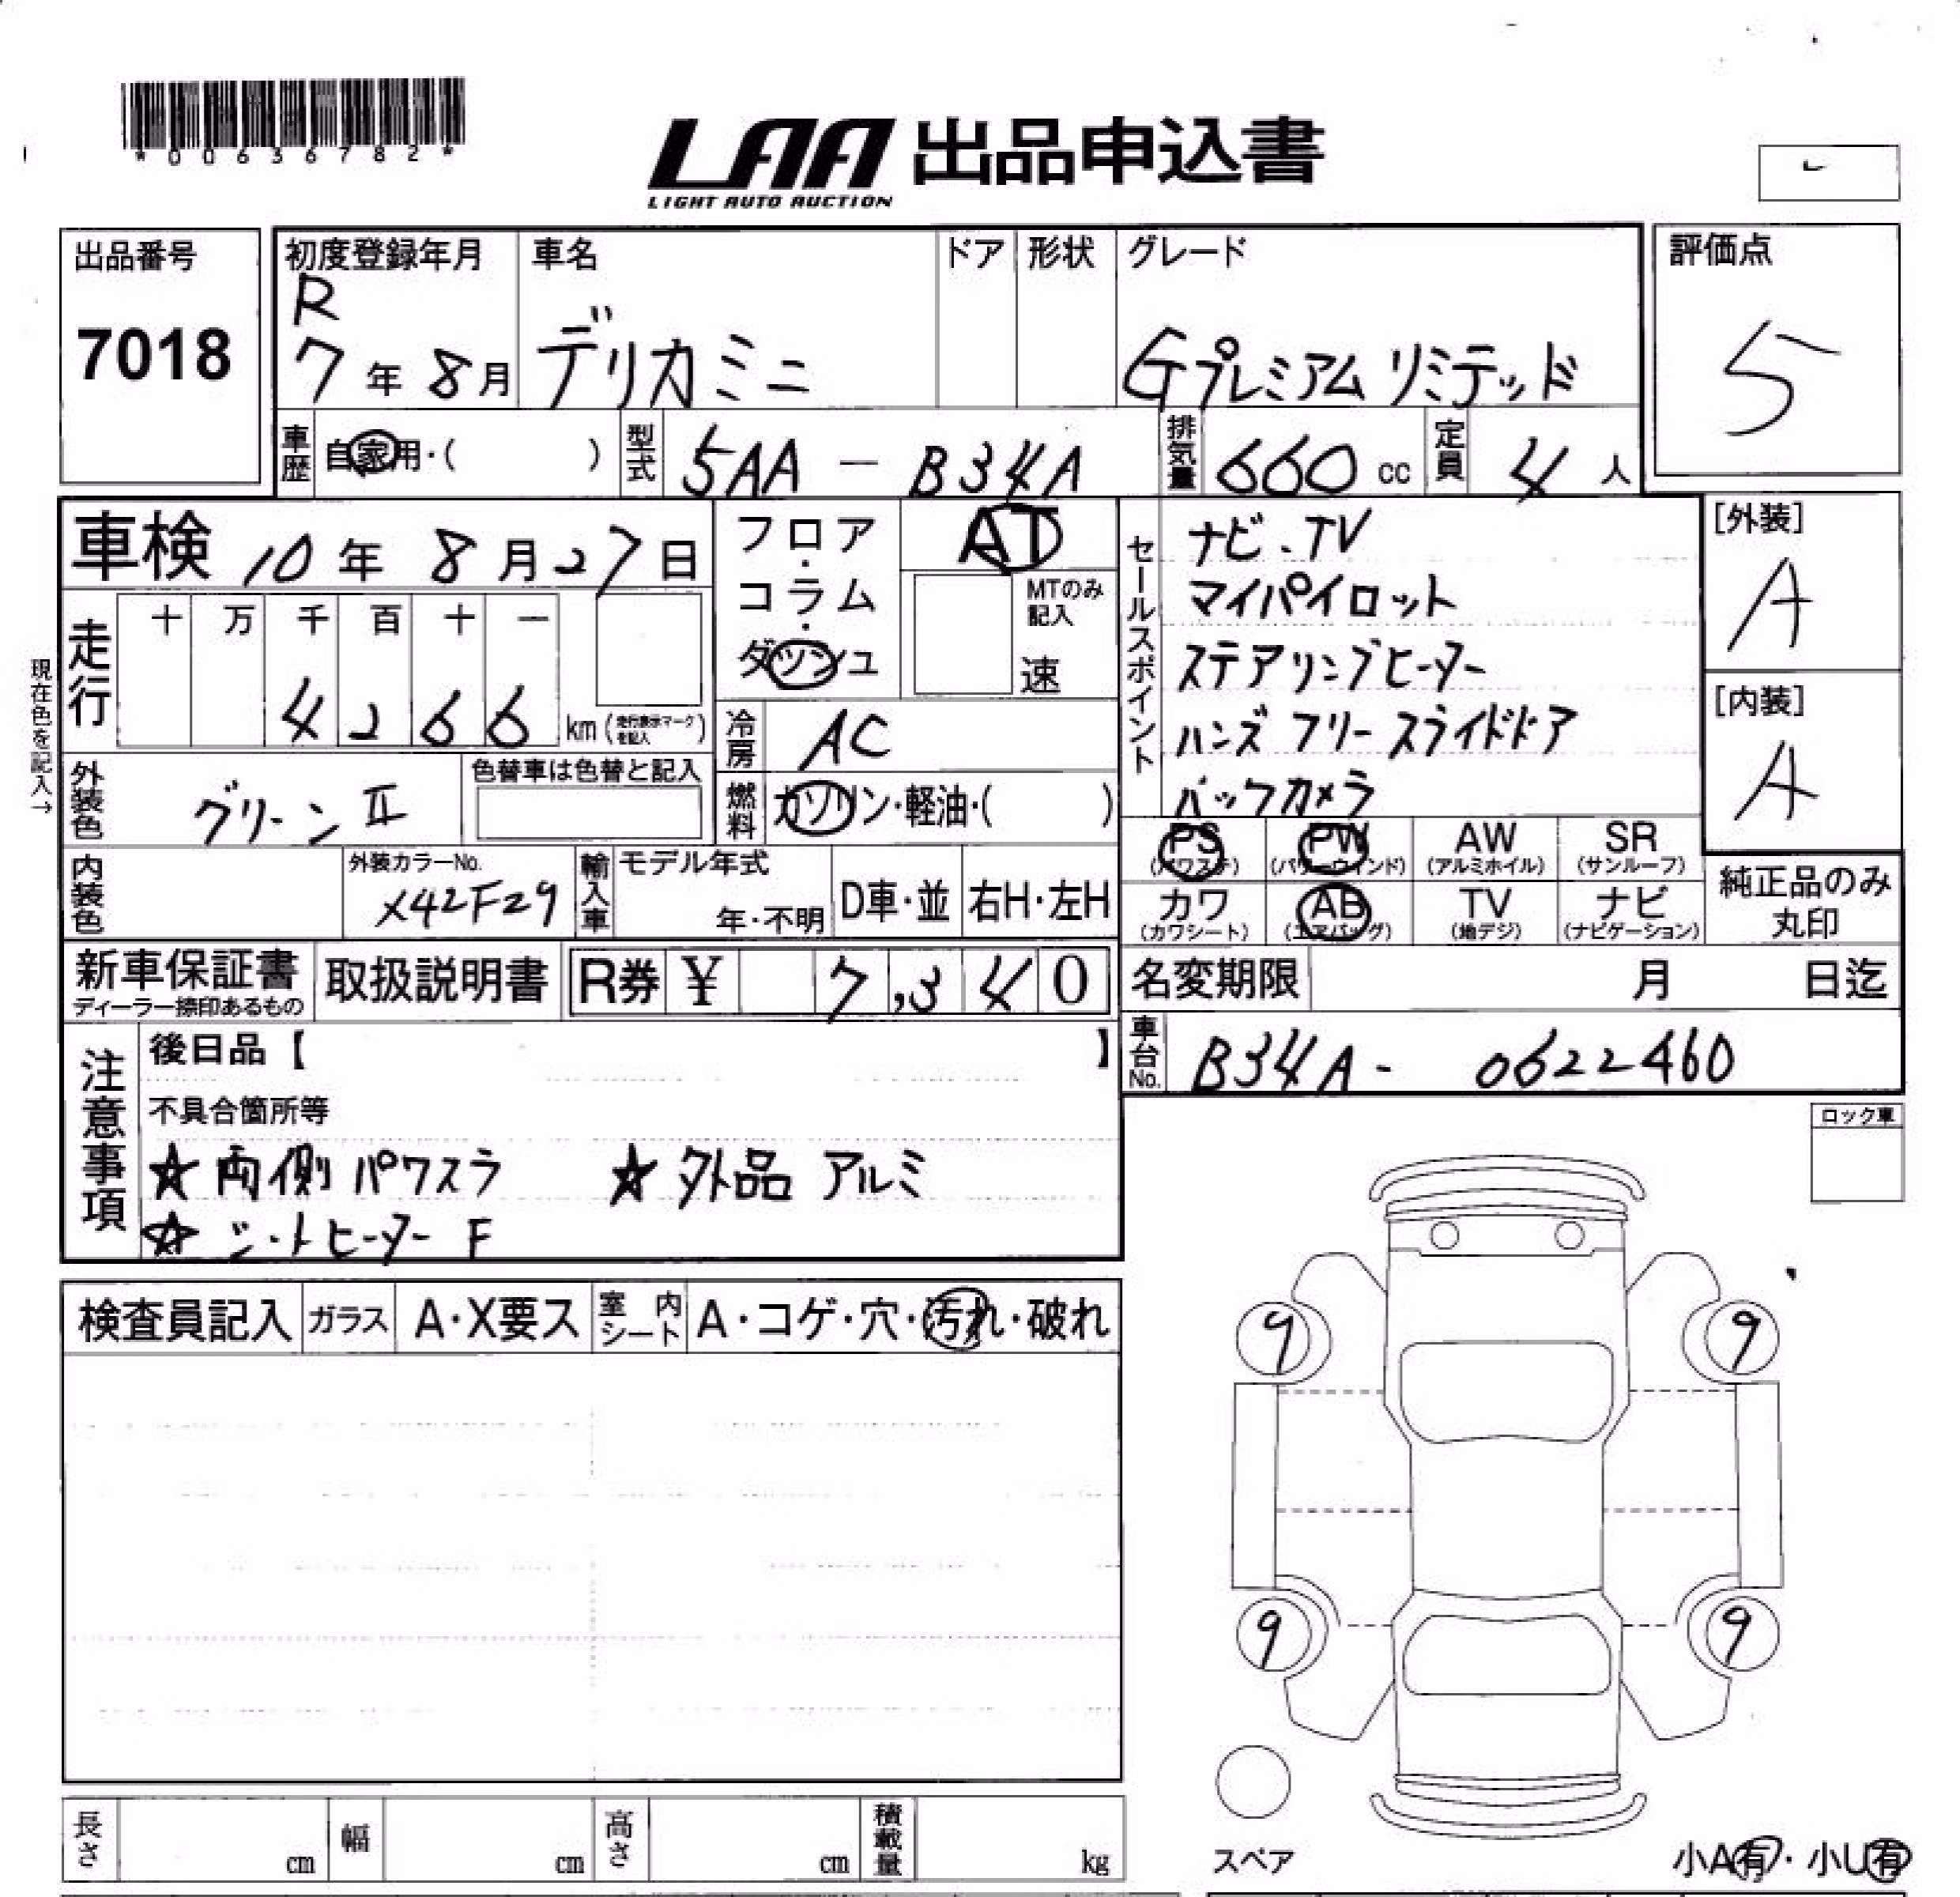 *00636782*
LAA 出品申込書
LIGHT AUTO AUCTION
出品番号
7018
初度登録年月
R
7年8月
車名
デリカミニ
ドア
形状
グレード
Gプレミアム リミテッド
評価点
5
車歴 自家用・( )
型式 5AA - B34A
排気量 660 cc
定員 4人
車検 10年8月27日
フロア・コラム・ダッシュ
AT
MTのみ記入
速
セールスポイント
ナビ・TV
マイパイロット
ステアリングヒーター
ハンズフリースライドドア
バックカメラ
[外装]
A
[内装]
A
現在色を記入→
走行
十 万 千 百 十 一
4 2 6 6 km (走行表示マークを記入)
冷房 AC
外装色 グリーンⅡ
色替車は色替と記入
燃料 ガソリン・軽油・( )
PS (パワステ)
PW (パワーウィンド)
AW (アルミホイル)
SR (サンルーフ)
内装色
外装カラーNo.
X42F29
輸入車
モデル年式
年・不明
D車・並
右H・左H
カワ (カワシート)
AB (エアバッグ)
TV (地デジ)
ナビ (ナビゲーション)
純正品のみ丸印
新車保証書
ディーラー捺印あるもの
取扱説明書
R券 ¥ 7,340
名変期限 月 日迄
注意事項
後日品【 】
車台No. B34A- 0622460
不具合箇所等
☆両側パワスラ ☆外品 アルミ
☆シートヒーター F
ロック車
検査員記入
ガラス A・X要ス
室内シート A・コゲ・穴・汚れ・破れ
9 9
9 9
長さ cm
幅 cm
高さ cm
積載量 kg
スペア
小A有・小U有